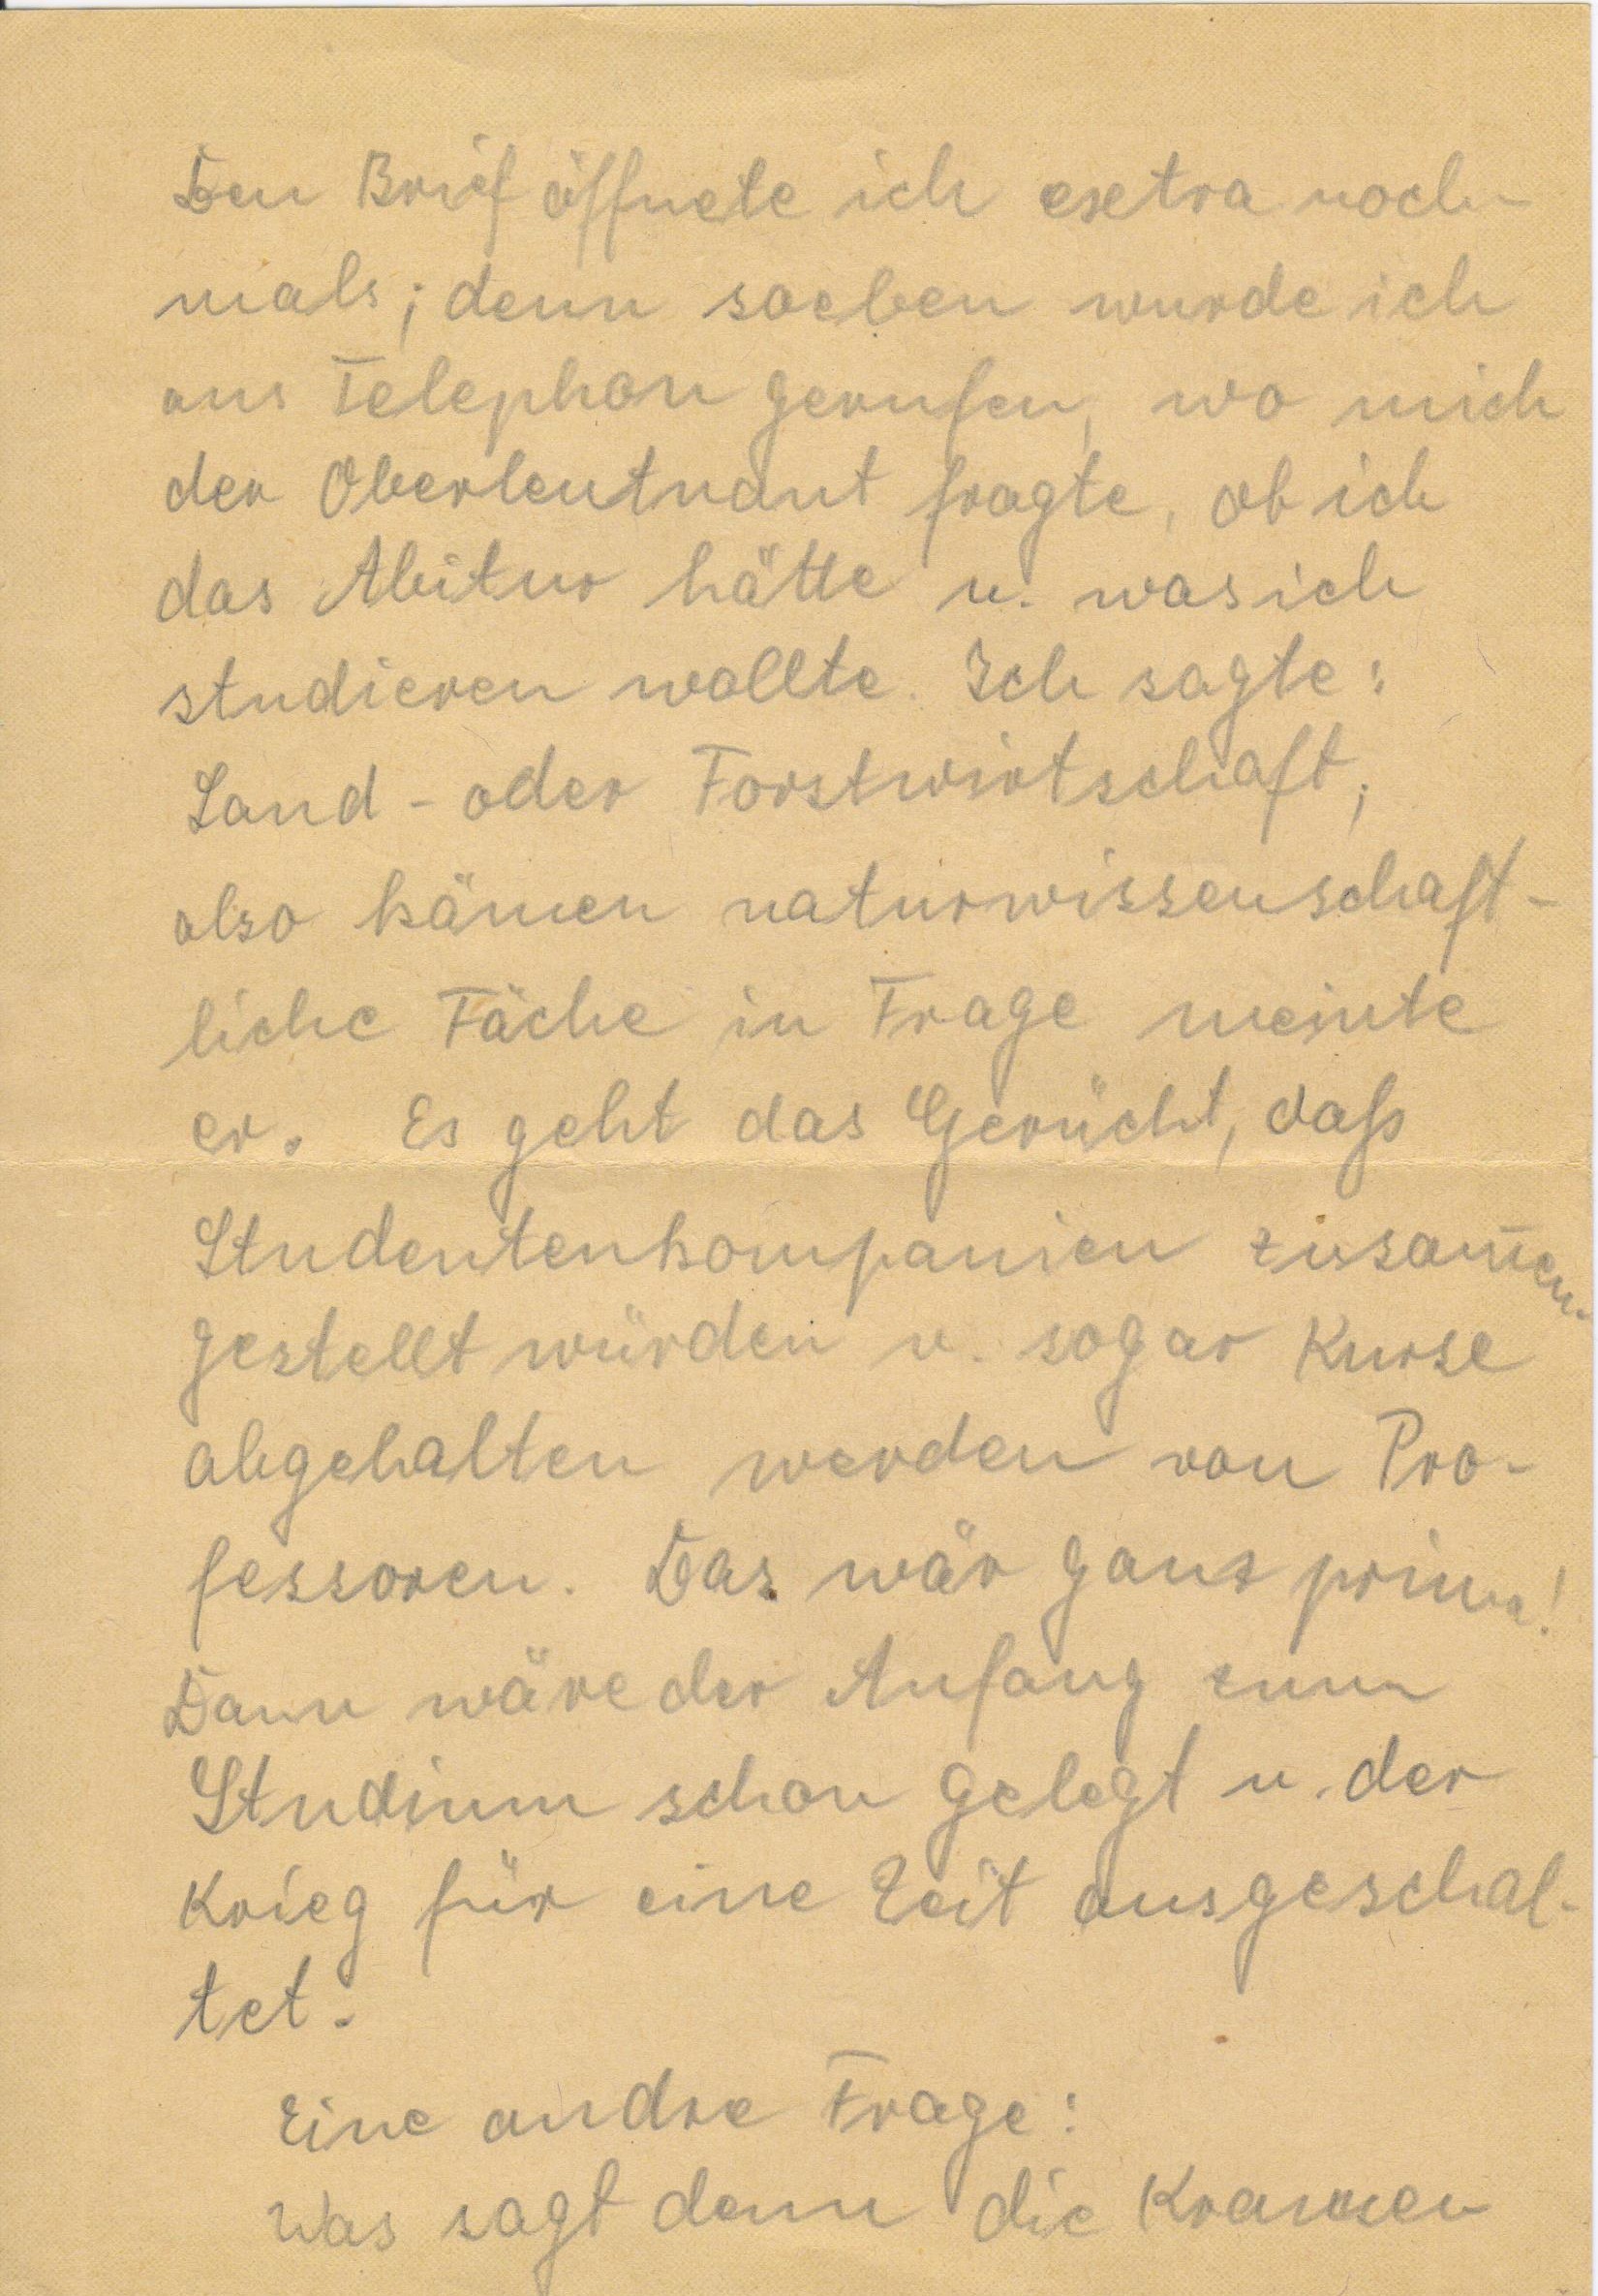 Den Brief öffnete ich exetra noch-
mals; denn soeben wurde ich
ans Telephon gerufen, wo mich
der Oberleutnant fragte, ob ich
das Abitur hätte u. was ich
studieren wollte. Ich sagte:
Land- oder Forstwirtschaft;
also kämen naturwissenschaft-
liche Fäche in Frage meinte
er. Es geht das Gerücht, daß
Studentenkompanien zusam̅en-
gestellt würden u. sogar Kurse
abgehalten werden von Pro-
fessoren. Das wär ganz prima!
Dann wäre der Anfang zum
Studium schon gelegt u. der
Krieg für eine Zeit ausgeschal-
tet.
Eine andre Frage:
Was sagt denn die